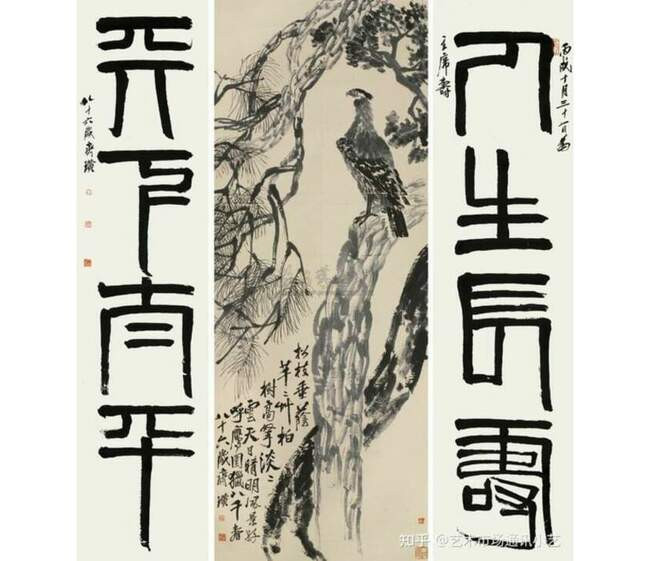 丙戌十月三十一日為
主席壽
人生長壽
松枝垂蔭
芊芊艸柏
樹高擎淡淡
雲天日晴明風景好
呼鷹圍獵八千春
八十六歲齊璜
天下太平
八十六歲齊璜
知乎 @艺术市场通讯小艺